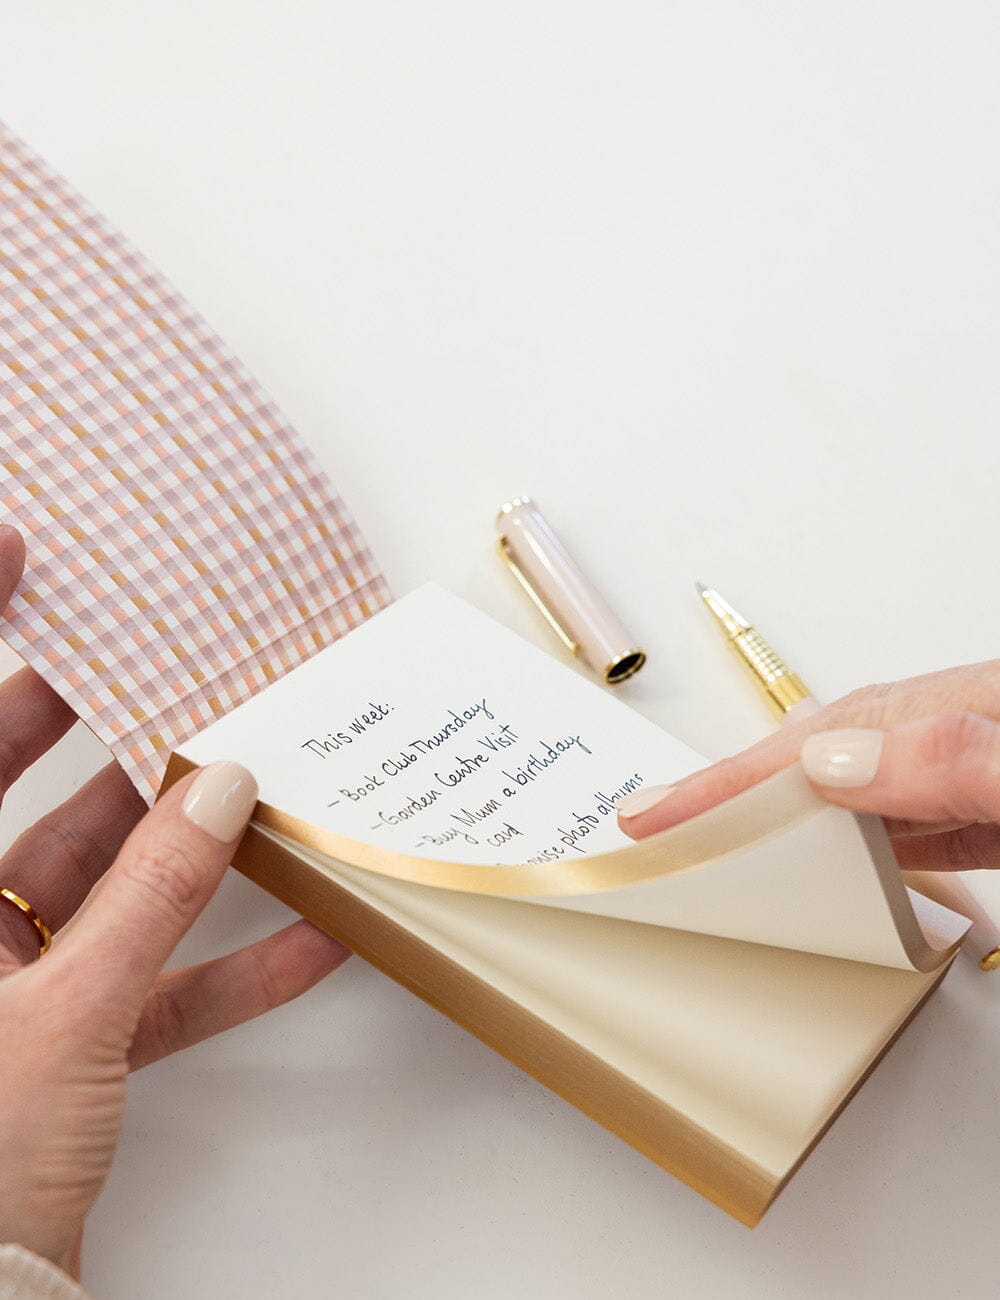 This week:
- Book Club Thursday
- Garden Centre Visit
- Buy Mum a birthday
card
photo albums